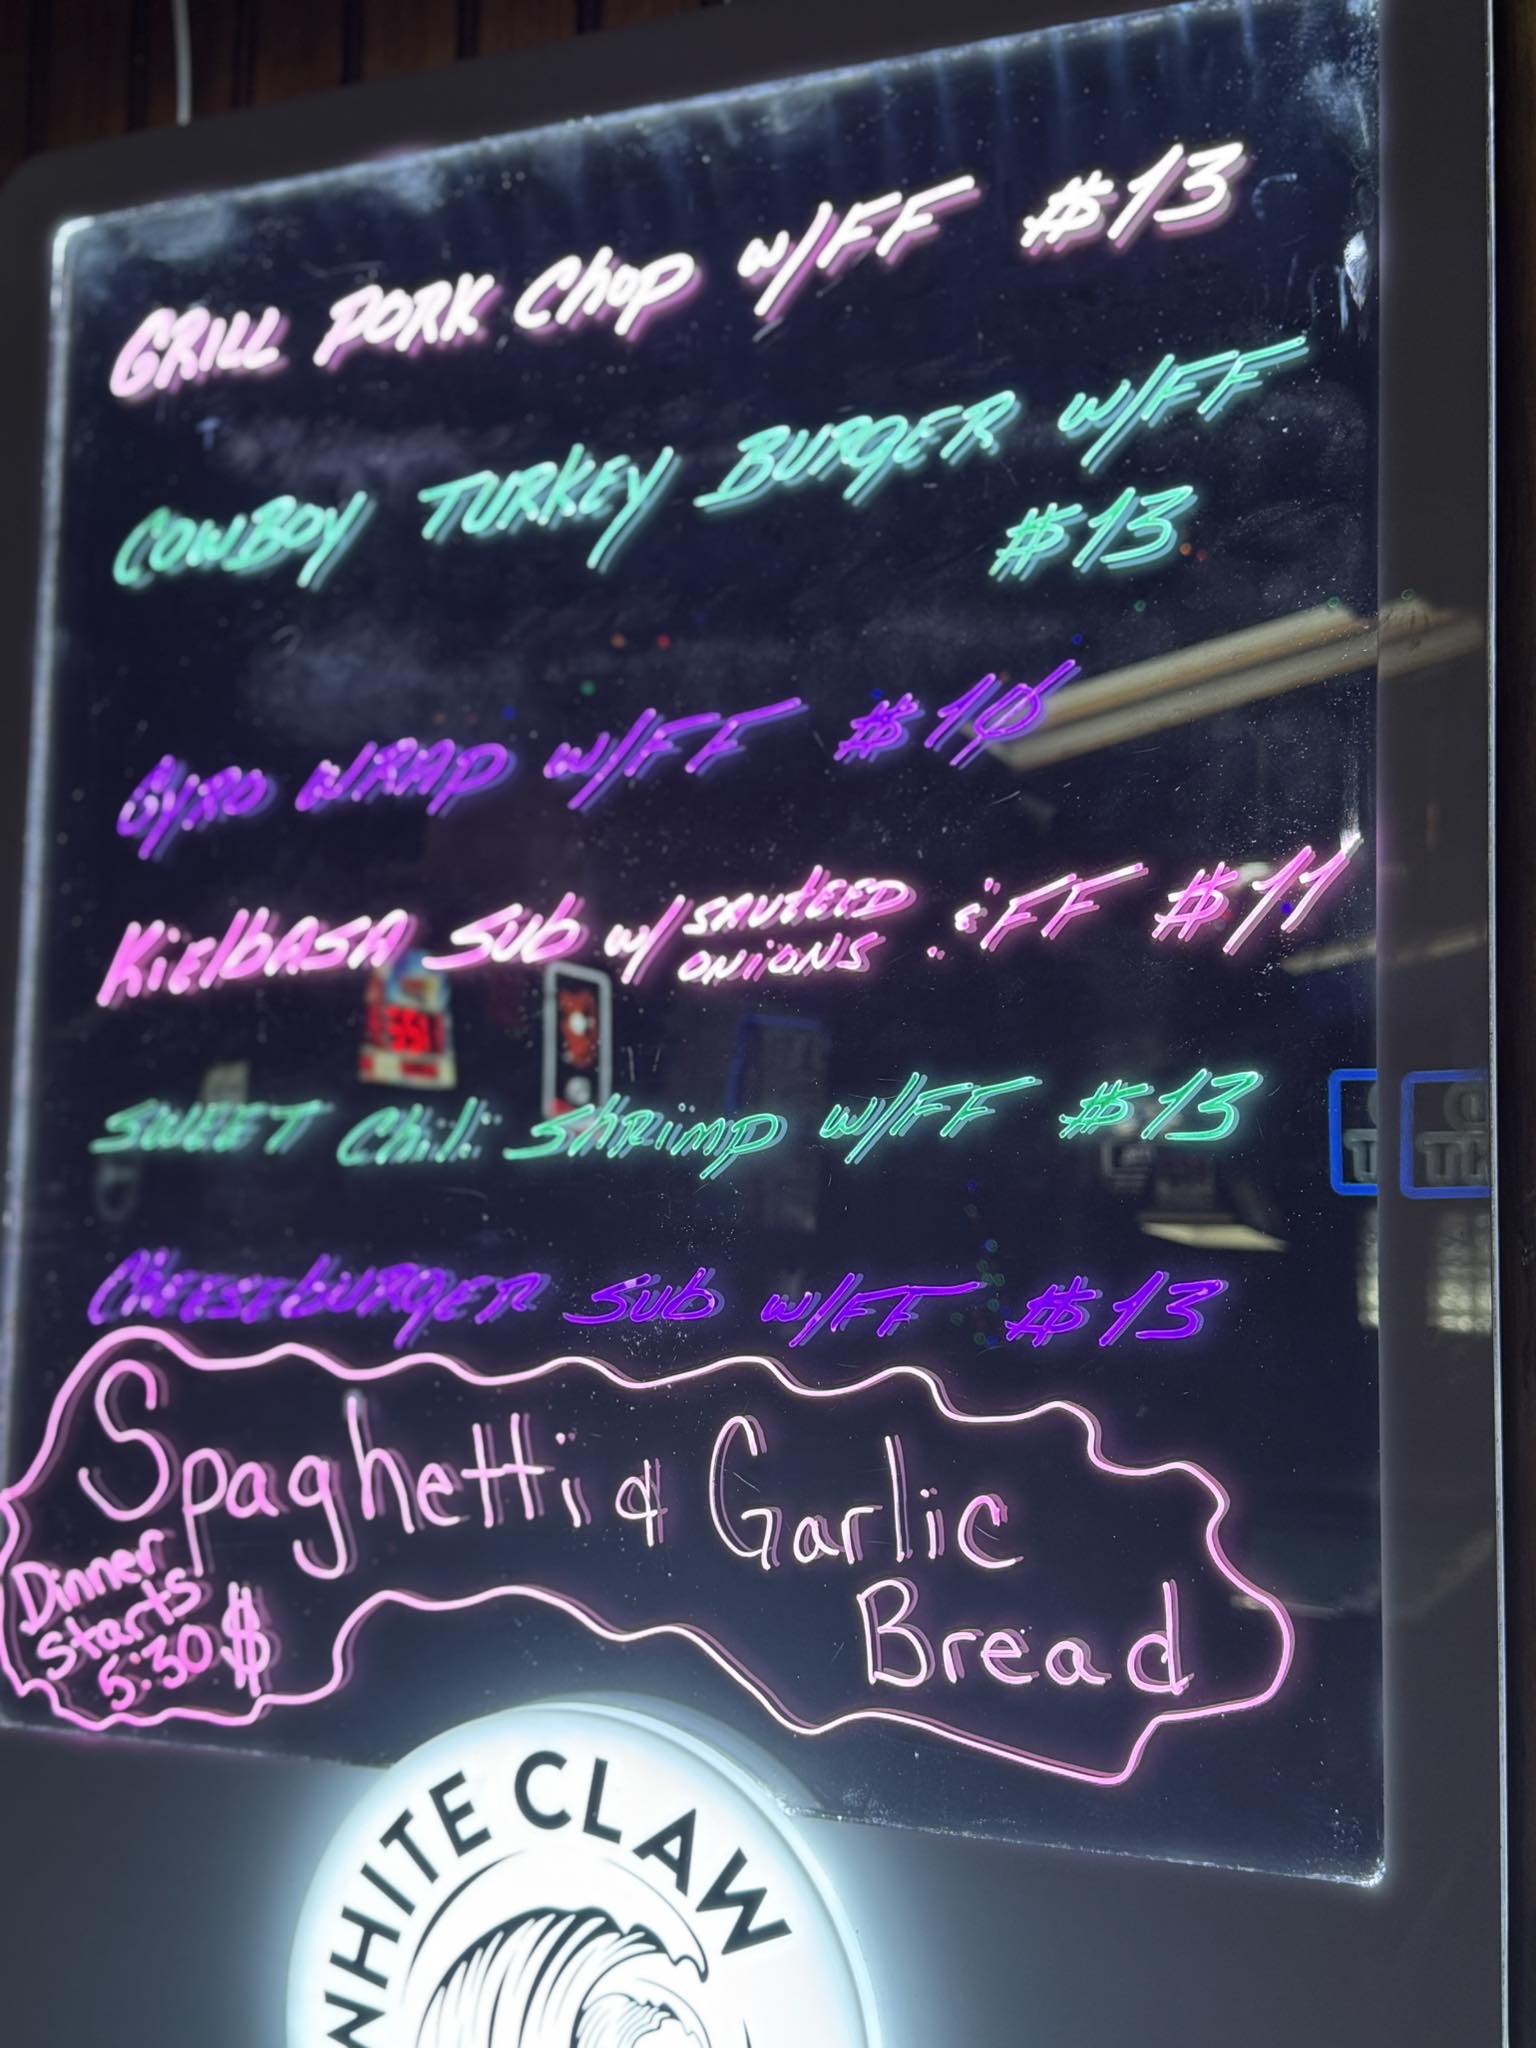 GRILL PORK Chop w/FF $13
COWBOY TURKEY BURGER w/FF
$13
GYRO WRAP w/FF $10
KielbASA SUb w/ SAUtEED ONiONS & FF $11
SWEET Chili ShRimp w/FF $13
CheesebURGER SUb w/FF $13
Spaghetti & Garlic
Bread
Dinner
Starts
5:30 $
WHITE CLAW